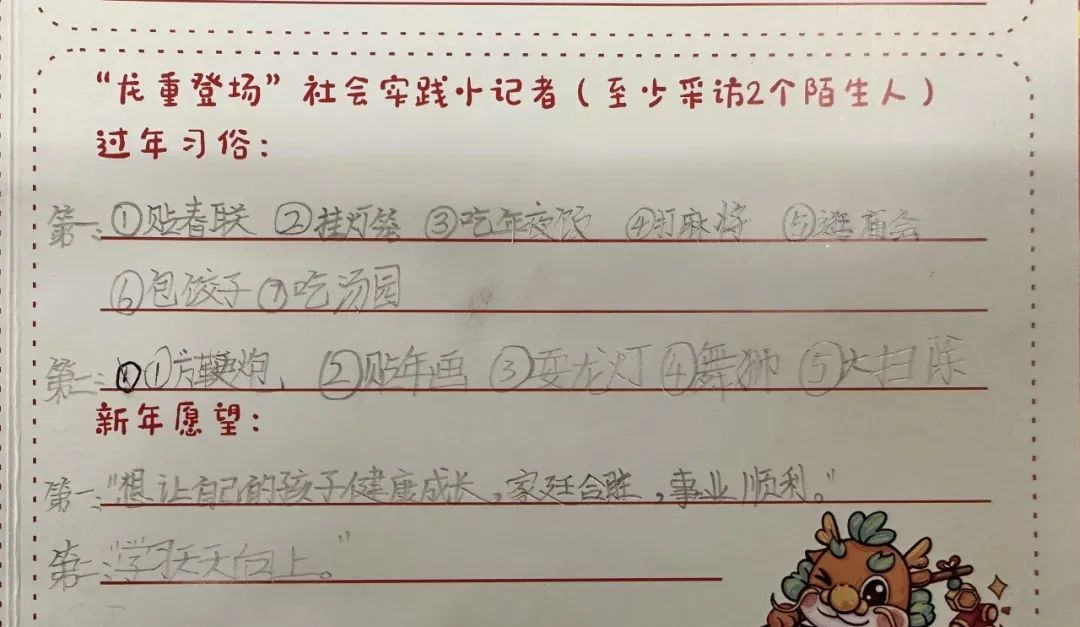 “龙重登场”社会实践小记者（至少采访2个陌生人）
过年习俗：
第一：①贴春联 ②挂灯笼 ③吃年夜饭 ④打麻将 ⑤逛庙会
⑥包饺子⑦吃汤园
第二：①放鞭炮、②贴年画 ③耍龙灯 ④舞狮 ⑤大扫除
新年愿望：
第一："想让自己的孩子健康成长，家廷合胜，事业顺利。"
第二："学习天天向上。"